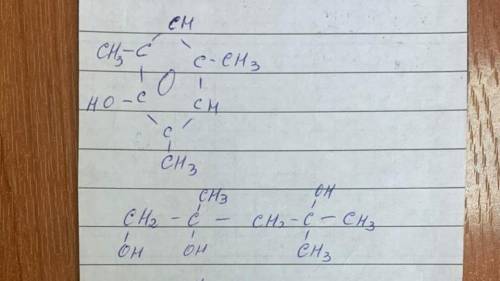 CH
CH₃-C C-CH₃
HO-C CH
C
CH₃
CH₃ OH
CH₂ - C - CH₂ - C - CH₃
OH OH CH₃